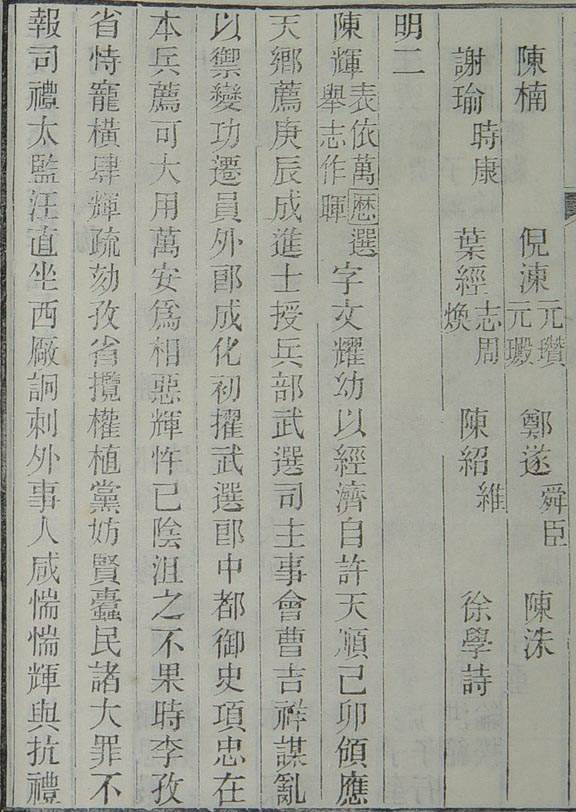 陳楠 倪涷 元瓚 元 鄭遂 舜臣 陳洙
謝瑜 時康 葉經 志周 煥 陳紹 維 徐學詩
明二
陳輝 表依萬曆選舉志作暉 字文耀幼以經濟自許天順己卯領應
天鄉薦庚辰成進士授兵部武選司主事會曹吉祥謀亂
以禦變功遷員外郎成化初擢武選郎中都御史項忠在
本兵薦可大用萬安爲相惡輝忤己陰沮之不果時李孜
省恃寵橫肆輝疏劾孜省攬權植黨妨賢蠹民諸大罪不
報司禮太監汪直坐西厰詗刺外事人咸惴惴輝與抗禮